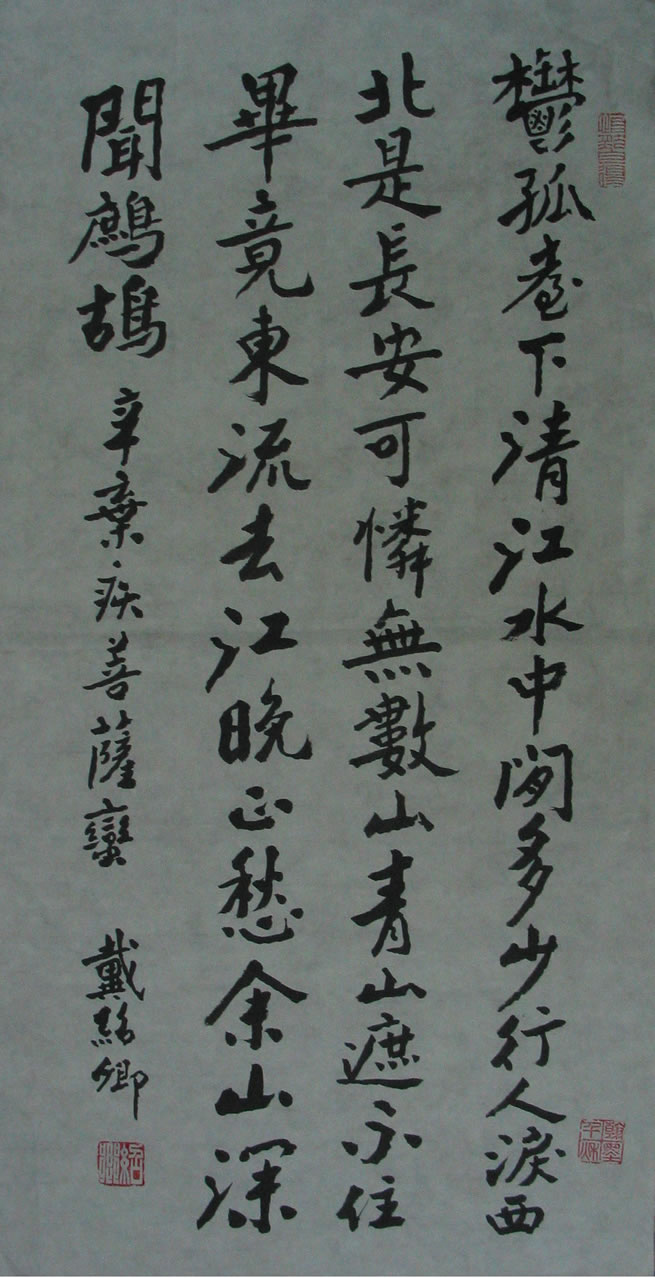 鬱孤臺下清江水中間多少行人淚西
北是長安可憐無數山青山遮不住
畢竟東流去江晚正愁余山深
聞鷓鴣 辛棄疾菩薩蠻 戴紹卿